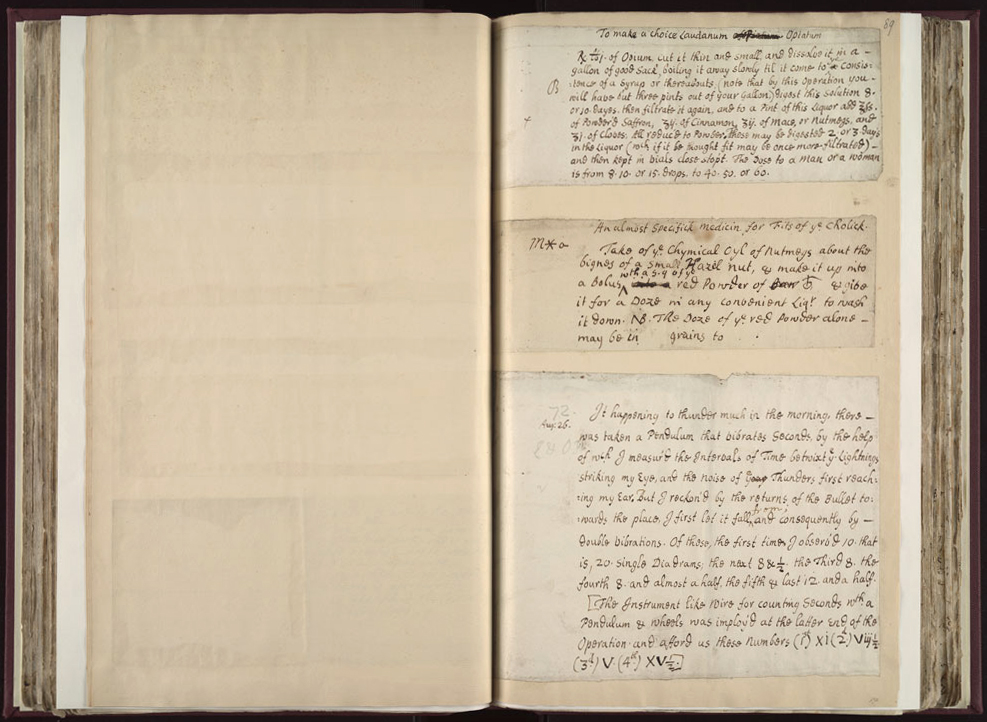 89
To make a choice Laudanum Opiatum
of Opium, cut it thin and small, and dissolve it in a –
gallon of good Sack, boiling it away slowly til it come to consis:
tence of a Syrup or thereabouts, (note that by this Operation you
will have but three pints out of your Gallon) digest this solution 8.
or 10. dayes, then filtrate it again, and to a Pint of this Liquor add
of Powder'd Saffron, of Cinnamon, of Mace, or Nutmegs, and
of Cloves: All reduc'd to Powder, these may be digested 2 or 3 days
in the Liquor (wch if it be thought fit may be once more filtrated) –
and then kept in Vials close stopt. The Dose to a man or a woman
is from 8. 10. or 15. drops, to 40. 50. or 60.
An almost Specifick medicin for Fits of ye Cholick.
Take of ye Chymical Oyl of Nutmegs about the
bignes of a small Hazil nut, & make it up into
with a s.q. of ye
a Bolus red Powder of & give
it for a Doze in any convenient Liqr to wash
it down. NB. The Doze of ye red Powder alone –
may be in grains to .
72.
Aug. 26.
It happening to thunder much in the morning, there –
was taken a Pendulum that vibrates Seconds, by the help
of wch I measur'd the Intervals of Time betwixt ye Lightnings
striking my Eye, and the noise of Thunders first reach:
ing my Ear. But I reckon'd by the returns of the Bullet to:
from
wards the place, I first let it fall, and consequently by –
double vibrations. Of these, the first time, I observ'd 10. that
is, 20. single Diadrans, the next 8 & ½. the Third 8. the
fourth 8. and almost a half, the fifth & last 12. and a half.
[The Instrument like Wire for counting Seconds wth a
Pendulum & wheels was imploy'd at the latter End of the
Operation and afford us these Numbers (1) XI (2) Viij½
(3d) V. (4th) XV½.]